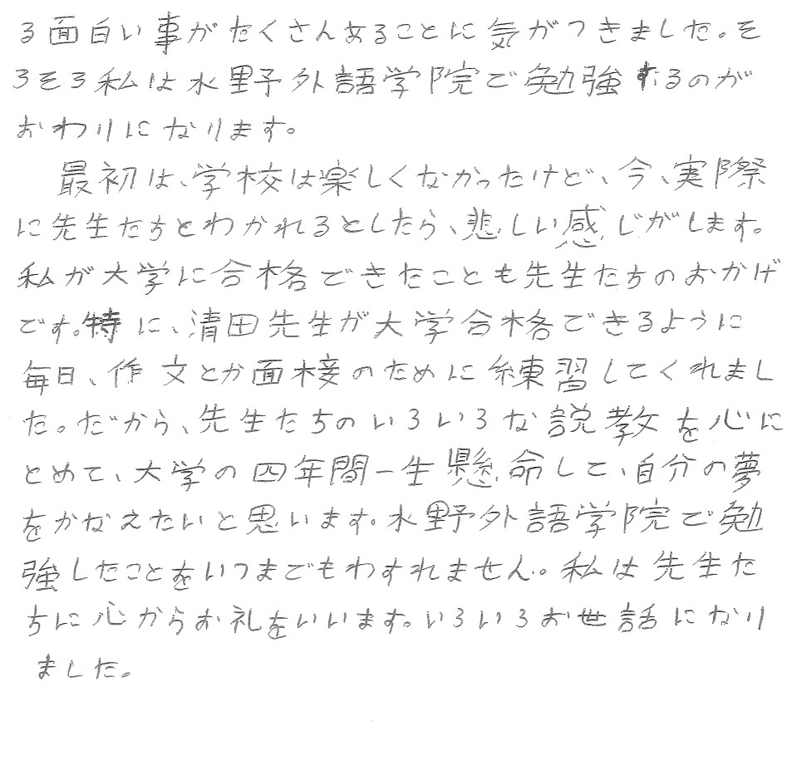 る面白い事がたくさんあることに気がつきました。そ
ろそろ私は水野外語学院で勉強するのが
おわりになります。
最初は、学校は楽しくなかったけど、今、実際
に先生たちとわかれるとしたら、悲しい感じがします。
私が大学に合格できたことも先生たちのおかげ
です。特に、清田先生が大学合格できるように
毎日、作文とか面接のために練習してくれまし
た。だから、先生たちのいろいろな説教を心に
とめて、大学の四年間一生懸命して、自分の夢
をかなえたいと思います。水野外語学院で勉
強したことをいつまでもわすれません。私は先生た
ちに心からお礼をいいます。いろいろお世話になり
ました。